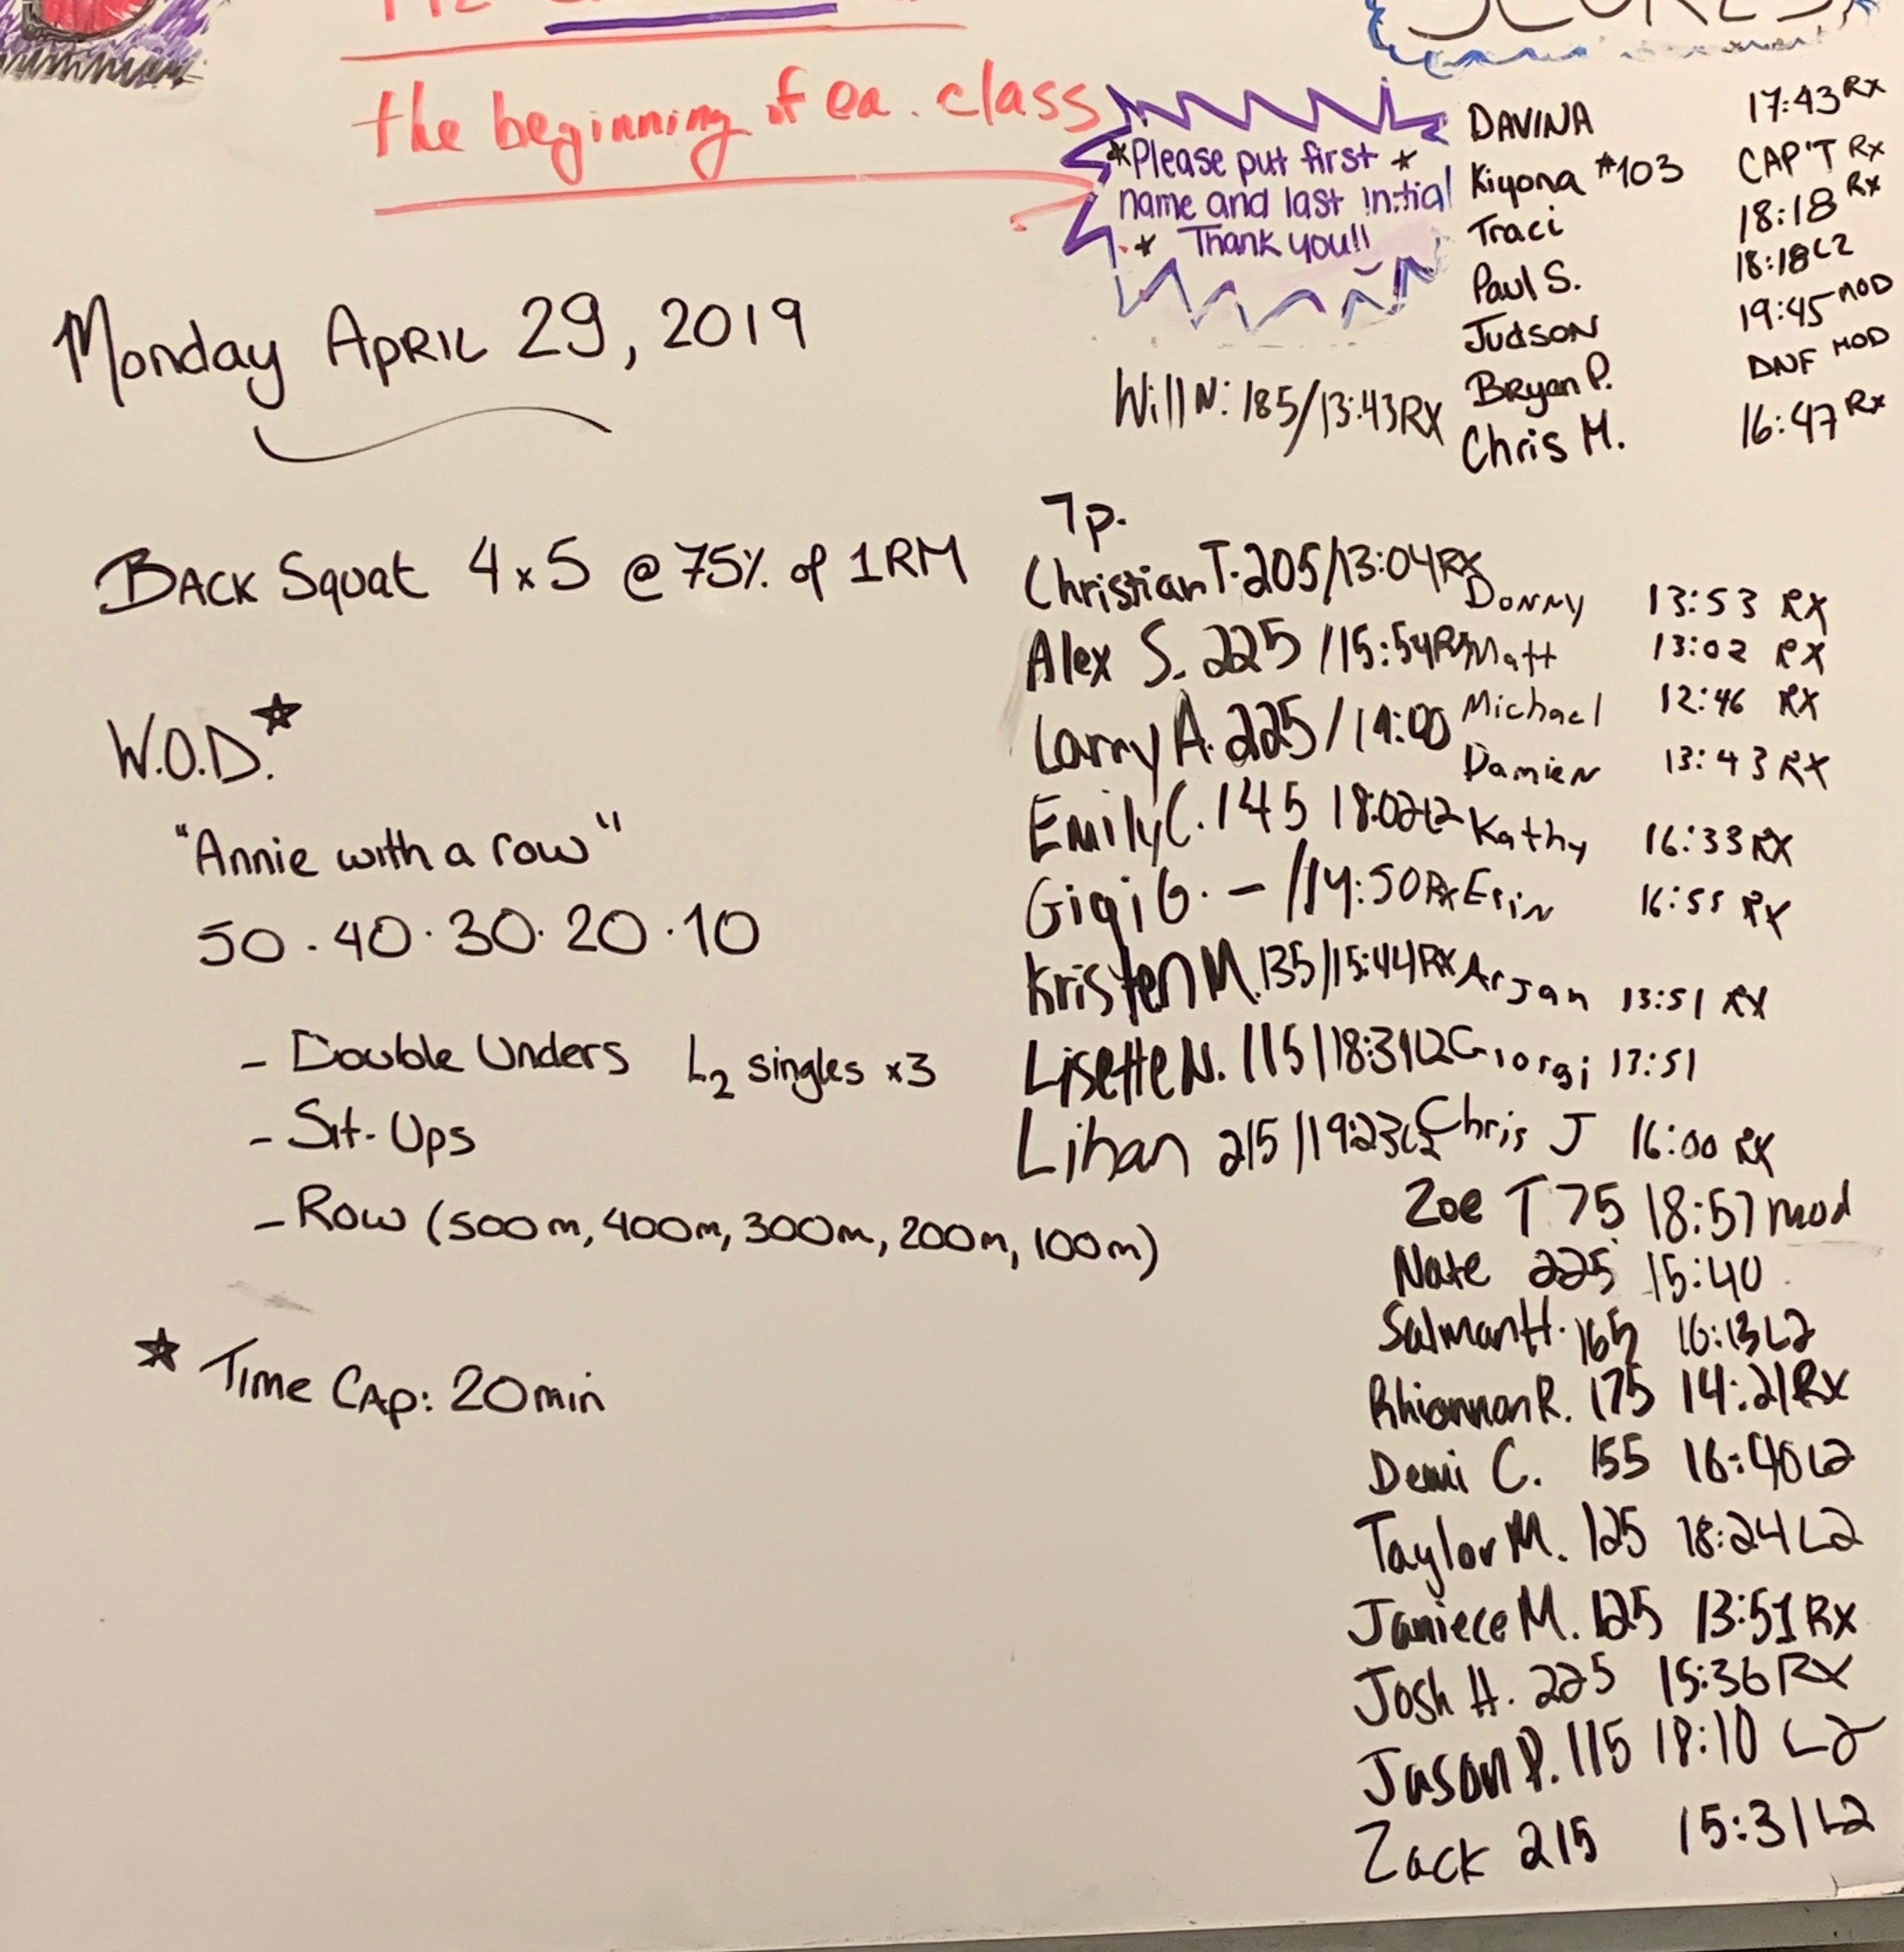 the beginning of ea. class
SCORES
*Please put first *
name and last initial
* Thank you!!
DAVINA 17:43 RX
Kiyona #103 CAP'T RX
Traci 18:18 RX
Paul S. 18:18 L2
Judson 19:45 MOD
Bryan P. DNF MOD
Chris M. 16:47 RX
Will N: 185/13:43 RX
Monday APRIL 29, 2019
BACK Squat 4x5 @ 75% of 1RM
W.O.D.*
"Annie with a row"
50 · 40 · 30 · 20 · 10
- Double Unders L2 singles x3
- Sit-Ups
- Row (500m, 400m, 300m, 200m, 100m)
* TIME CAP: 20min
7p.
Christian T. 205/13:04 RX
Alex S. 225 /15:54 RX
Larry A. 225 /
Emily C. 145 18:02 L2
Gigi G. - /14:50 RX
Kristen M. 135/15:44 RX
Lisette N. 115/18:39 L2
Lihan 215/19:23 L2
Donny 13:53 RX
Matt 13:02 RX
Michael 12:46 RX
Damien 13:43 RX
Kathy 16:33 RX
Erin 16:55 RX
Arjan 13:51 RX
Giorgi 13:51
Chris J 16:00 RX
Zoe T 75 18:57 mod
Nate 225 15:40
Salman H. 165 16:13 L2
Rhiannon R. 175 14:21 Rx
Demi C. 155 16:40 L2
Taylor M. 125 18:24 L2
Janiece M. 125 13:51 Rx
Josh H. 225 15:36 RX
Jason P. 115 18:10 L2
Zack 215 15:31 L2